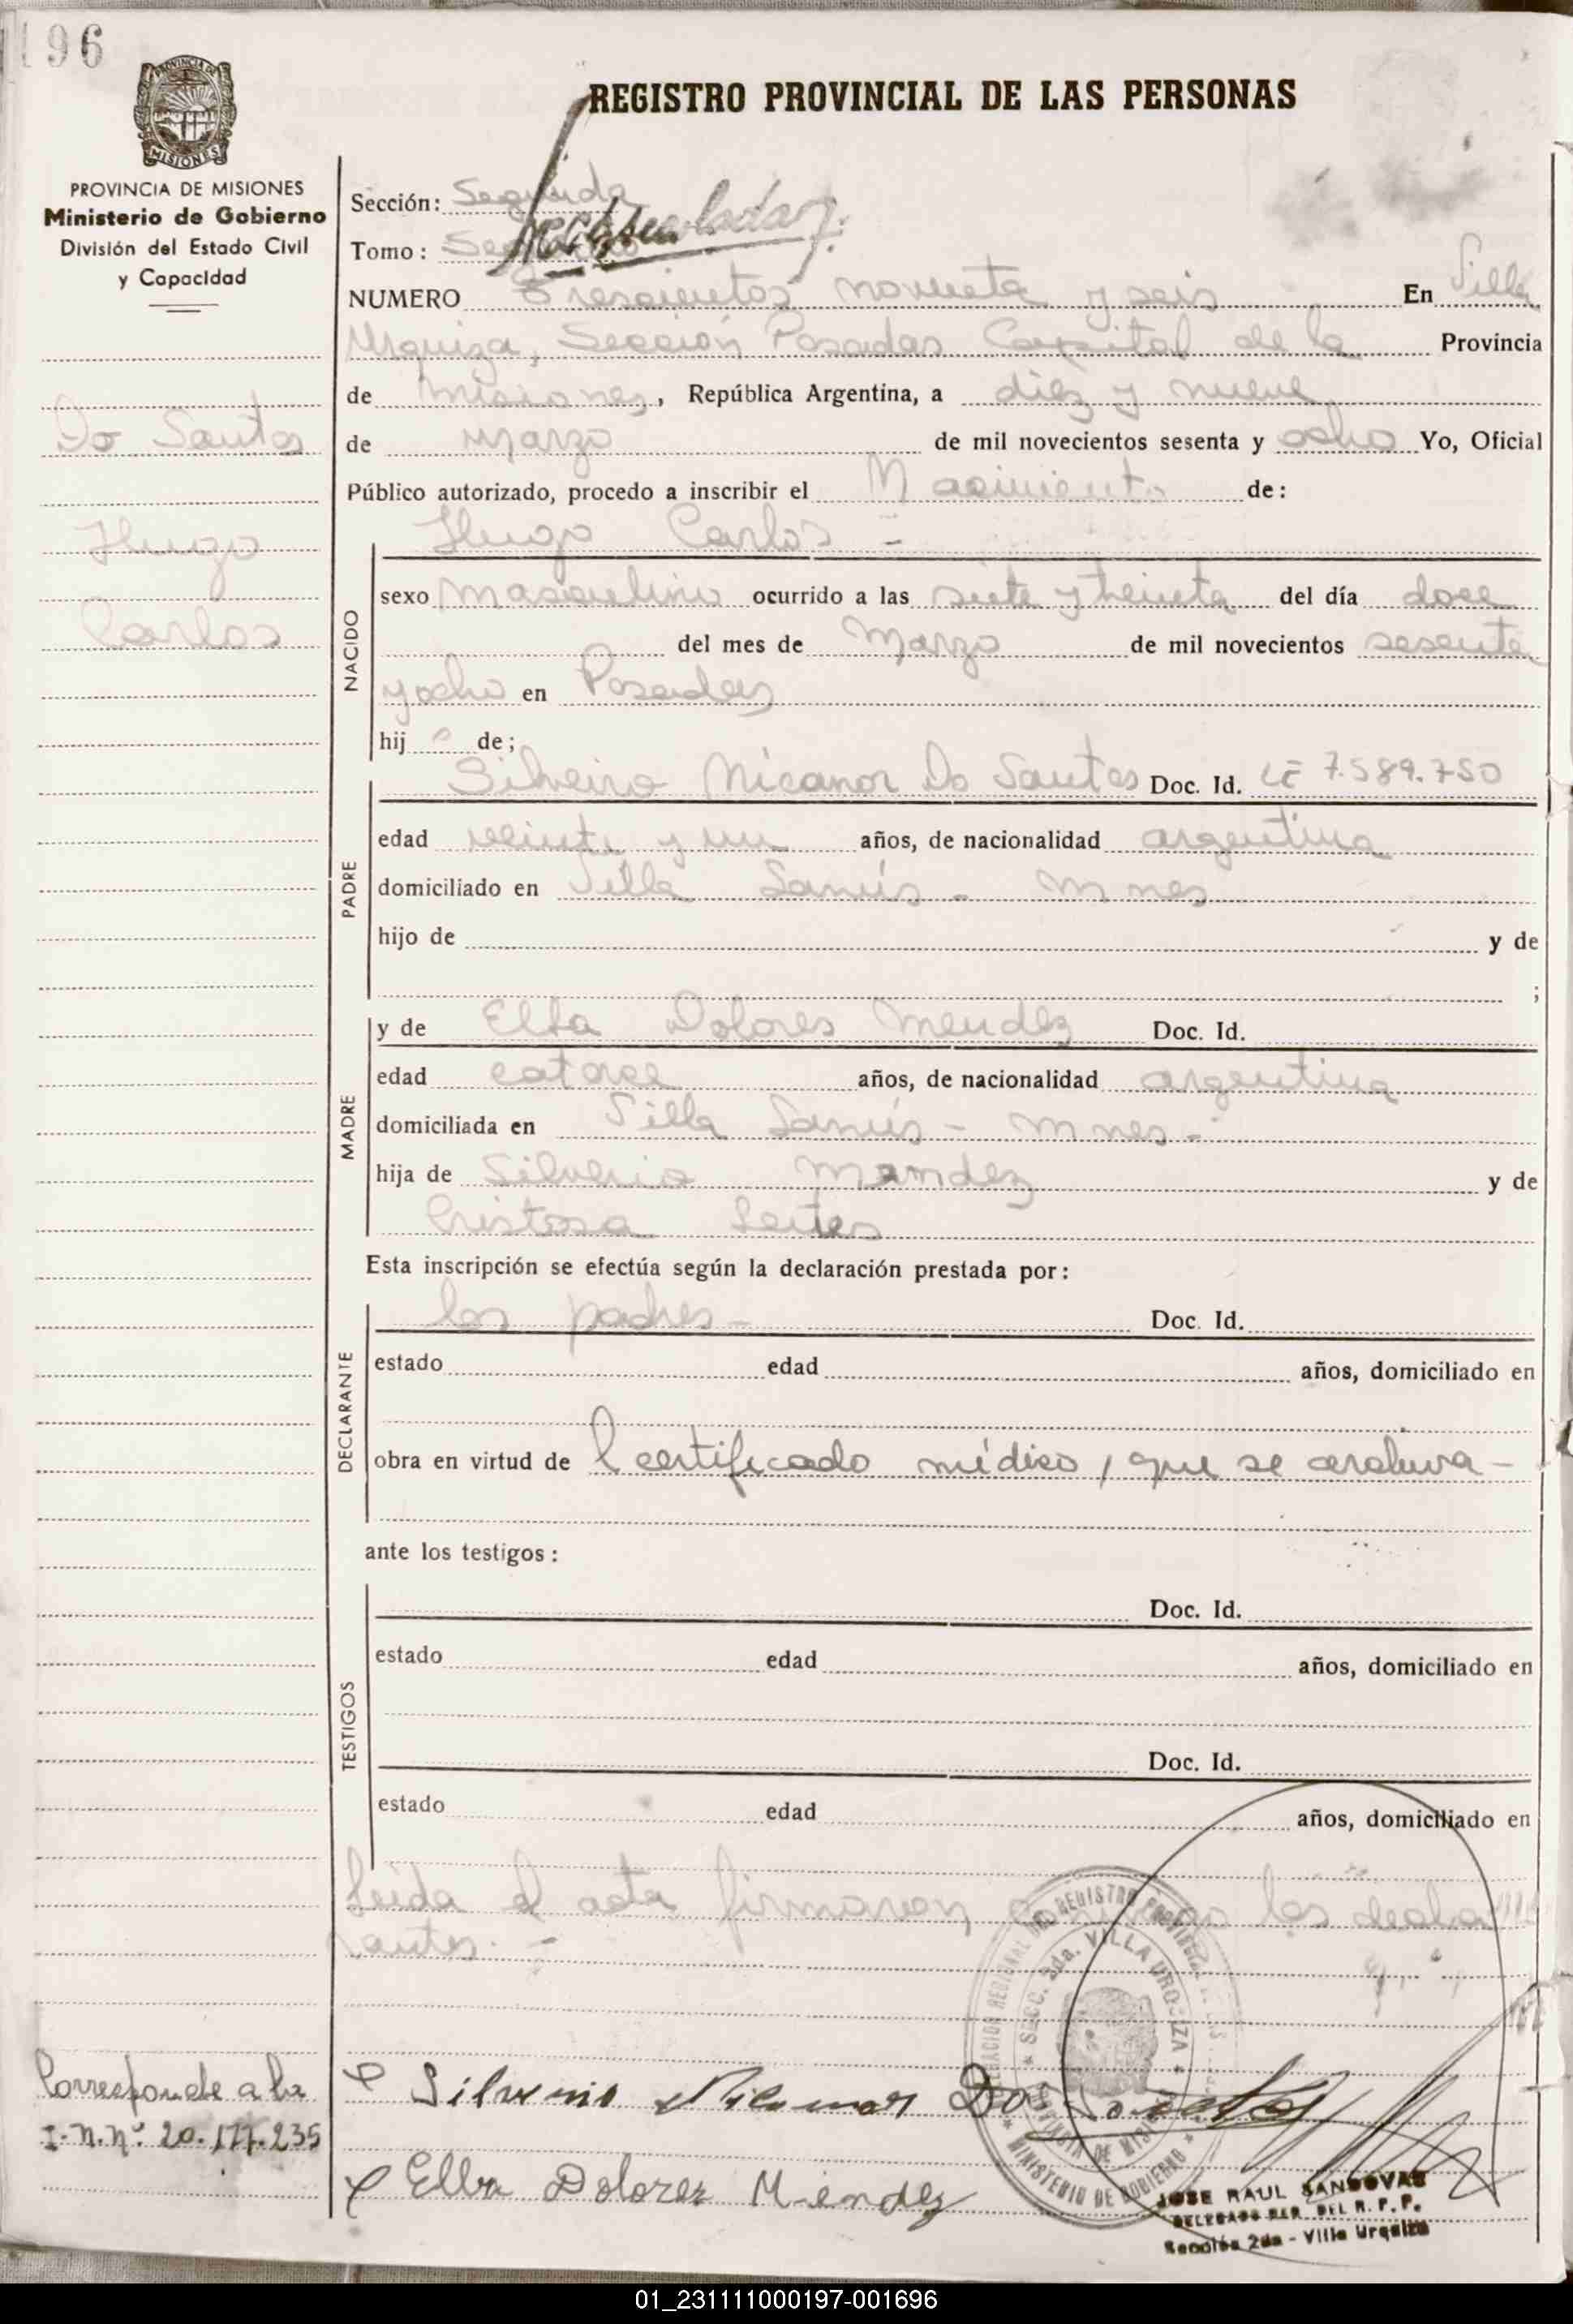 196
REGISTRO PROVINCIAL DE LAS PERSONAS
PROVINCIA DE MISIONES
MISIONES
PROVINCIA DE MISIONES
Ministerio de Gobierno
División del Estado Civil
y Capacidad
Sección: Segunda
Tomo: Segundo
NUMERO Trescientos noventa y seis En Villa
Urquiza, Sección Posadas Capital de la Provincia
de Misiones, República Argentina, a diez y nueve
Do Santos
de Marzo de mil novecientos sesenta y ocho Yo, Oficial
Público autorizado, procedo a inscribir el Nacimiento de:
Hugo
Carlos
Hugo Carlos -
NACIDO
sexo masculino ocurrido a las siete y treinta del día doce
del mes de Marzo de mil novecientos sesenta
y ocho en Posadas
hijo de;
PADRE
Silverio Nicanor Do Santos Doc. Id. LE 7.589.750
edad veinte y un años, de nacionalidad argentina
domiciliado en Villa Lanús - Mnes
hijo de y de
;
MADRE
y de Elba Dolores Mendez Doc. Id.
edad catorce años, de nacionalidad argentina
domiciliada en Villa Lanús - Mnes -
hija de Silverio Mendez y de
Leites
Esta inscripción se efectúa según la declaración prestada por:
DECLARANTE
los padres - Doc. Id.
estado edad años, domiciliado en
obra en virtud de l certificado médico, que se archiva -
ante los testigos:
TESTIGOS
Doc. Id.
estado edad años, domiciliado en
Doc. Id.
estado edad años, domiciliado en
Leida el acta firmaron los decla
rantes. -
DELEGACION REGIONAL DEL REGISTRO PROVINCIAL
SECC. 2da. VILLA URQUIZA
PROVINCIA DE MISIONES
MINISTERIO DE GOBIERNO
Corresponde a la
I.N.Nº 20.177.235
Silverio Nicanor Do Santos
Elba Dolores Mendez
JOSE RAUL SANDOVAL
DELEGADO REG. DEL R.P.P.
Sección 2da - Villa Urquiza
01_231111000197-001696